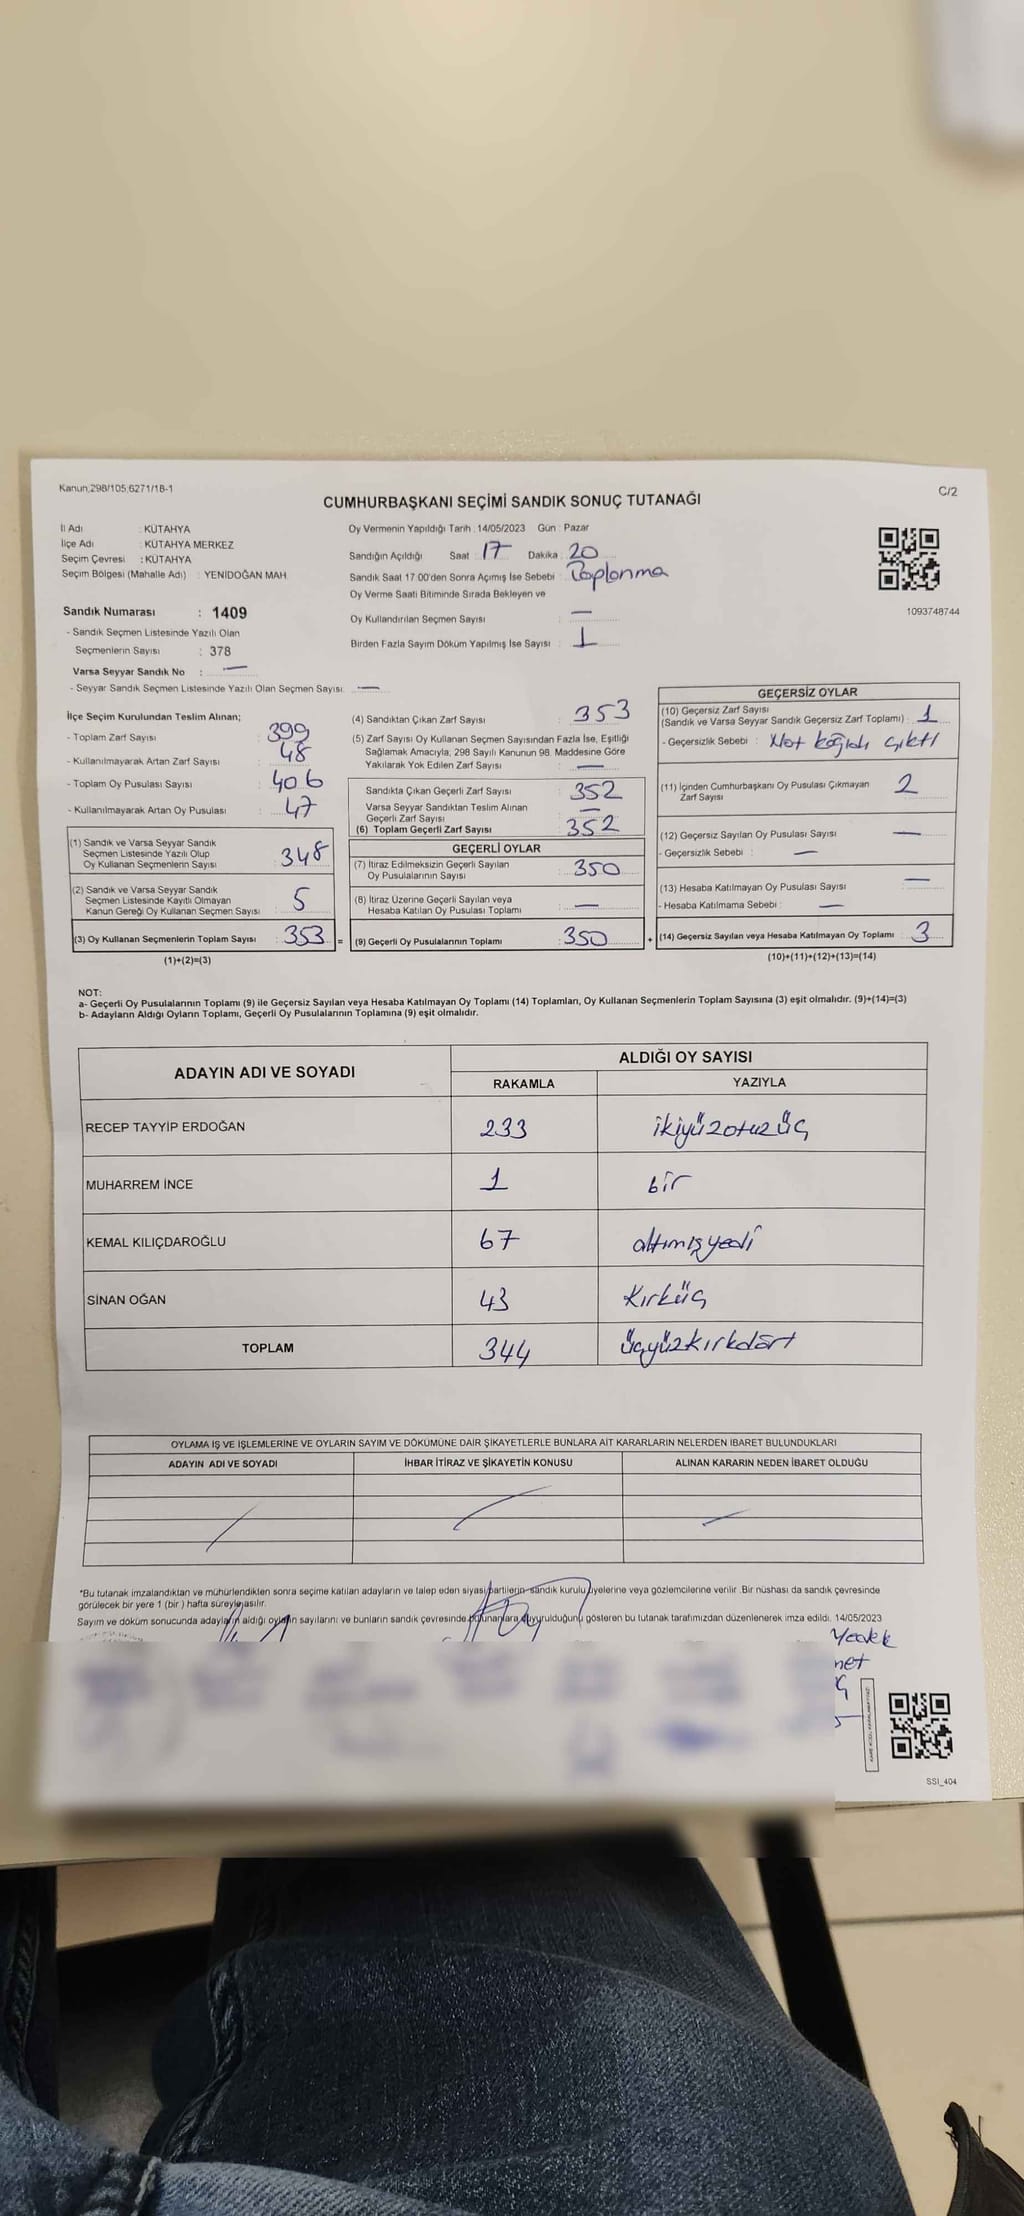 Kanun;298/105,6271/18-1
C/2
CUMHURBAŞKANI SEÇİMİ SANDIK SONUÇ TUTANAĞI
İl Adı : KÜTAHYA
İlçe Adı : KÜTAHYA MERKEZ
Seçim Çevresi : KÜTAHYA
Seçim Bölgesi (Mahalle Adı) : YENİDOĞAN MAH
Oy Vermenin Yapıldığı Tarih : 14/05/2023 Gün : Pazar
Sandığın Açıldığı Saat : 17 Dakika : 20
Sandık Saat 17:00'den Sonra Açımış İse Sebebi : Toplanma
Oy Verme Saati Bitiminde Sırada Bekleyen ve
Oy Kullandırılan Seçmen Sayısı : —
Birden Fazla Sayım Döküm Yapılmış İse Sayısı : 1
1093748744
Sandık Numarası : 1409
- Sandık Seçmen Listesinde Yazılı Olan
Seçmenlerin Sayısı : 378
Varsa Seyyar Sandık No : —
- Seyyar Sandık Seçmen Listesinde Yazılı Olan Seçmen Sayısı: —
İlçe Seçim Kurulundan Teslim Alınan;
- Toplam Zarf Sayısı : 399
- Kullanılmayarak Artan Zarf Sayısı : 48
- Toplam Oy Pusulası Sayısı : 406
- Kullanılmayarak Artan Oy Pusulası : 47
(1) Sandık ve Varsa Seyyar Sandık
Seçmen Listesinde Yazılı Olup
Oy Kullanan Seçmenlerin Sayısı : 348
(2) Sandık ve Varsa Seyyar Sandık
Seçmen Listesinde Kayıtlı Olmayan
Kanun Gereği Oy Kullanan Seçmen Sayısı : 5
(3) Oy Kullanan Seçmenlerin Toplam Sayısı : 353 =
(1)+(2)=(3)
(4) Sandıktan Çıkan Zarf Sayısı : 353
(5) Zarf Sayısı Oy Kullanan Seçmen Sayısından Fazla İse, Eşitliği
Sağlamak Amacıyla, 298 Sayılı Kanunun 98. Maddesine Göre
Yakılarak Yok Edilen Zarf Sayısı : —
Sandıkta Çıkan Geçerli Zarf Sayısı : 352
Varsa Seyyar Sandıktan Teslim Alınan
Geçerli Zarf Sayısı : —
(6) Toplam Geçerli Zarf Sayısı : 352
GEÇERLİ OYLAR
(7) İtiraz Edilmeksizin Geçerli Sayılan
Oy Pusulalarının Sayısı : 350
(8) İtiraz Üzerine Geçerli Sayılan veya
Hesaba Katılan Oy Pusulası Toplamı : —
(9) Geçerli Oy Pusulalarının Toplamı : 350 +
GEÇERSİZ OYLAR
(10) Geçersiz Zarf Sayısı
(Sandık ve Varsa Seyyar Sandık Geçersiz Zarf Toplamı) : 1
- Geçersizlik Sebebi : Not kağıdı çıktı
(11) İçinden Cumhurbaşkanı Oy Pusulası Çıkmayan
Zarf Sayısı : 2
(12) Geçersiz Sayılan Oy Pusulası Sayısı : —
- Geçersizlik Sebebi : —
(13) Hesaba Katılmayan Oy Pusulası Sayısı : —
- Hesaba Katılmama Sebebi : —
(14) Geçersiz Sayılan veya Hesaba Katılmayan Oy Toplamı : 3
(10)+(11)+(12)+(13)=(14)
NOT:
a- Geçerli Oy Pusulalarının Toplamı (9) ile Geçersiz Sayılan veya Hesaba Katılmayan Oy Toplamı (14) Toplamları, Oy Kullanan Seçmenlerin Toplam Sayısına (3) eşit olmalıdır. (9)+(14)=(3)
b- Adayların Aldığı Oyların Toplamı, Geçerli Oy Pusulalarının Toplamına (9) eşit olmalıdır.
ADAYIN ADI VE SOYADI
ALDIĞI OY SAYISI
RAKAMLA YAZIYLA
RECEP TAYYİP ERDOĞAN 233 ikiyüzotuzüç
MUHARREM İNCE 1 bir
KEMAL KILIÇDAROĞLU 67 altımışyedi
SİNAN OĞAN 43 Kırküç
TOPLAM 344 üçyüzkırkdört
OYLAMA İŞ VE İŞLEMLERİNE VE OYLARIN SAYIM VE DÖKÜMÜNE DAİR ŞİKAYETLERLE BUNLARA AİT KARARLARIN NELERDEN İBARET BULUNDUKLARI
ADAYIN ADI VE SOYADI İHBAR İTİRAZ VE ŞİKAYETİN KONUSU ALINAN KARARIN NEDEN İBARET OLDUĞU
*Bu tutanak imzalandıktan ve mühürlendikten sonra seçime katılan adayların ve talep eden siyasi partilerin sandık kurulu üyelerine veya gözlemcilerine verilir. Bir nüshası da sandık çevresinde
görülecek bir yere 1 (bir ) hafta süreyle asılır.
Sayım ve döküm sonucunda adayların aldığı oyların sayılarını ve bunların sandık çevresinde bulunanlara duyurulduğunu gösteren bu tutanak tarafımızdan düzenlenerek imza edildi. 14/05/2023
Yedek
met
SSI_404